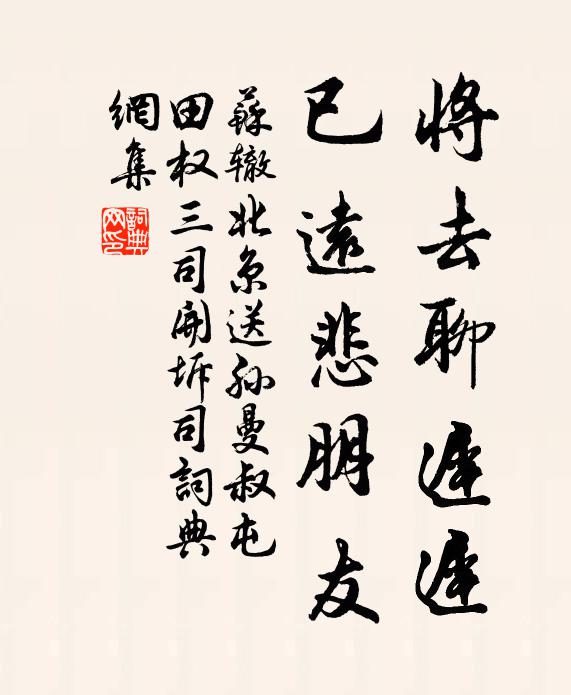 將去聊遲遲
已遠悲朋友
蘇辙北京送孫曼叔屯
田权三司開坼司詞典
網集
詞典网印